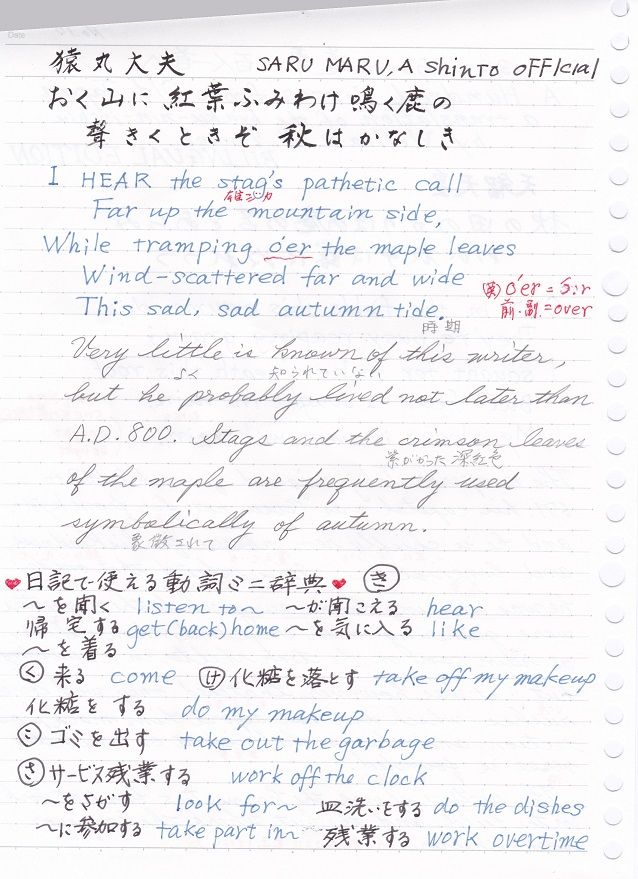 Date
猿丸大夫 SARU MARU, A ShinTO OFFICIAL
おく山に紅葉ふみわけ鳴く鹿の
聲きくときぞ 秋はかなしき
I HEAR the stag's pathetic call
雄ジカ
Far up the mountain side,
While tramping o'er the maple leaves
Wind-scattered far and wide
o'er =
前・副 = over
This sad, sad autumn tide.
時期
Very little is known of this writer,
よく 知られていない
but he probably lived not later than
A.D. 800. Stags and the crimson leaves
紫がかった深紅色
of the maple are frequently used
symbolically of autumn.
象徴されて
♥日記で使える動詞ミニ辞典♥ き
～を聞く listen to～ ～が聞こえる hear
帰宅する get(back)home ～を気に入る like
～を着る
く 来る come け 化粧を落とす take off my makeup
化粧をする do my makeup
こ ゴミを出す take out the garbage
さ サービス残業する work off the clock
～をさがす look for～ 皿洗いをする do the dishes
～に参加する take part in～ 残業する work overtime